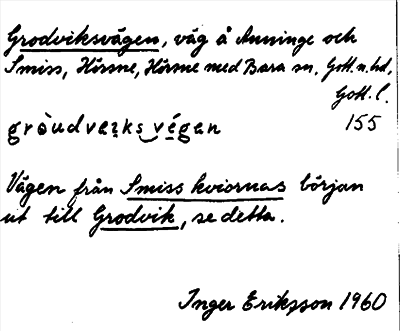 Grodviksvägen, väg å Anninge och
Smiss, Hörsne, Hörsne med Bara sn, Gotl. n. hd,
Gotl. l.
155
gròudvaiks vé̱gan
Vägen från Smiss kviornas början
ut till Grodvik, se detta.
Inger Eriksson 1960